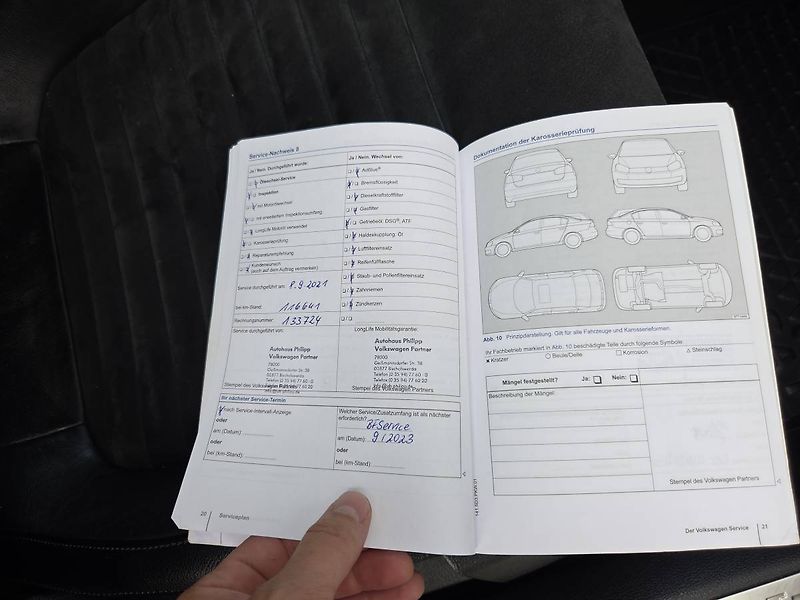 Service-Nachweis 8
Ja / Nein. Durchgeführt wurde:
Ölwechsel-Service
Inspektion
mit Motorölwechsel
mit erweitertem Inspektionsumfang
LongLife Motoröl verwendet
Karosserieprüfung
Reparaturempfehlung
Kundenwunsch
(auch auf dem Auftrag vermerken)
Service durchgeführt am: 8.9.2021
bei km-Stand: 116641
Rechnungsnummer: 133724
Service durchgeführt von:
Autohaus Philipp
Volkswagen Partner
Stempel des Volkswagen Partners
Ja / Nein. Wechsel von:
AdBlue®
Bremsflüssigkeit
Dieselkraftstofffilter
Gasfilter
Getriebeöl: DSG®, ATF
Haldexkupplung: Öl
Luftfiltereinsatz
Reifenfüllflasche
Staub- und Pollenfiltereinsatz
Zahnriemen
Zündkerzen
LongLife Mobilitätsgarantie:
Autohaus Philipp
Volkswagen Partner
Stempel des Volkswagen Partners
Ihr nächster Service-Termin
nach Service-Intervall-Anzeige
oder
am (Datum):
oder
bei (km-Stand):
Welcher Service/Zusatzumfang ist als nächster
erforderlich?
BFService
am (Datum): 9/2023
oder
bei (km-Stand):
20 Serviceplan
Dokumentation der Karosserieprüfung
Abb. 10 Prinzipdarstellung. Gilt für alle Fahrzeuge und Karosserieformen.
Ihr Fachbetrieb markiert in Abb. 10 beschädigte Teile durch folgende Symbole:
Kratzer Beule/Delle Korrosion Steinschlag
Mängel festgestellt? Ja: Nein:
Beschreibung der Mängel:
Stempel des Volkswagen Partners
Der Volkswagen Service 21